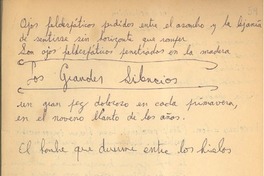 Ojos feldespáticos perdidos entre el asombro y la lejanía
de sentirse sin horizonte que romper
Son ojos feldespáticos penetrados en la madera
Los Grandes Silencios
un gran pez doloroso en cada primavera,
en el noveno llanto de los años.
El hombre que duerme entre los hielos